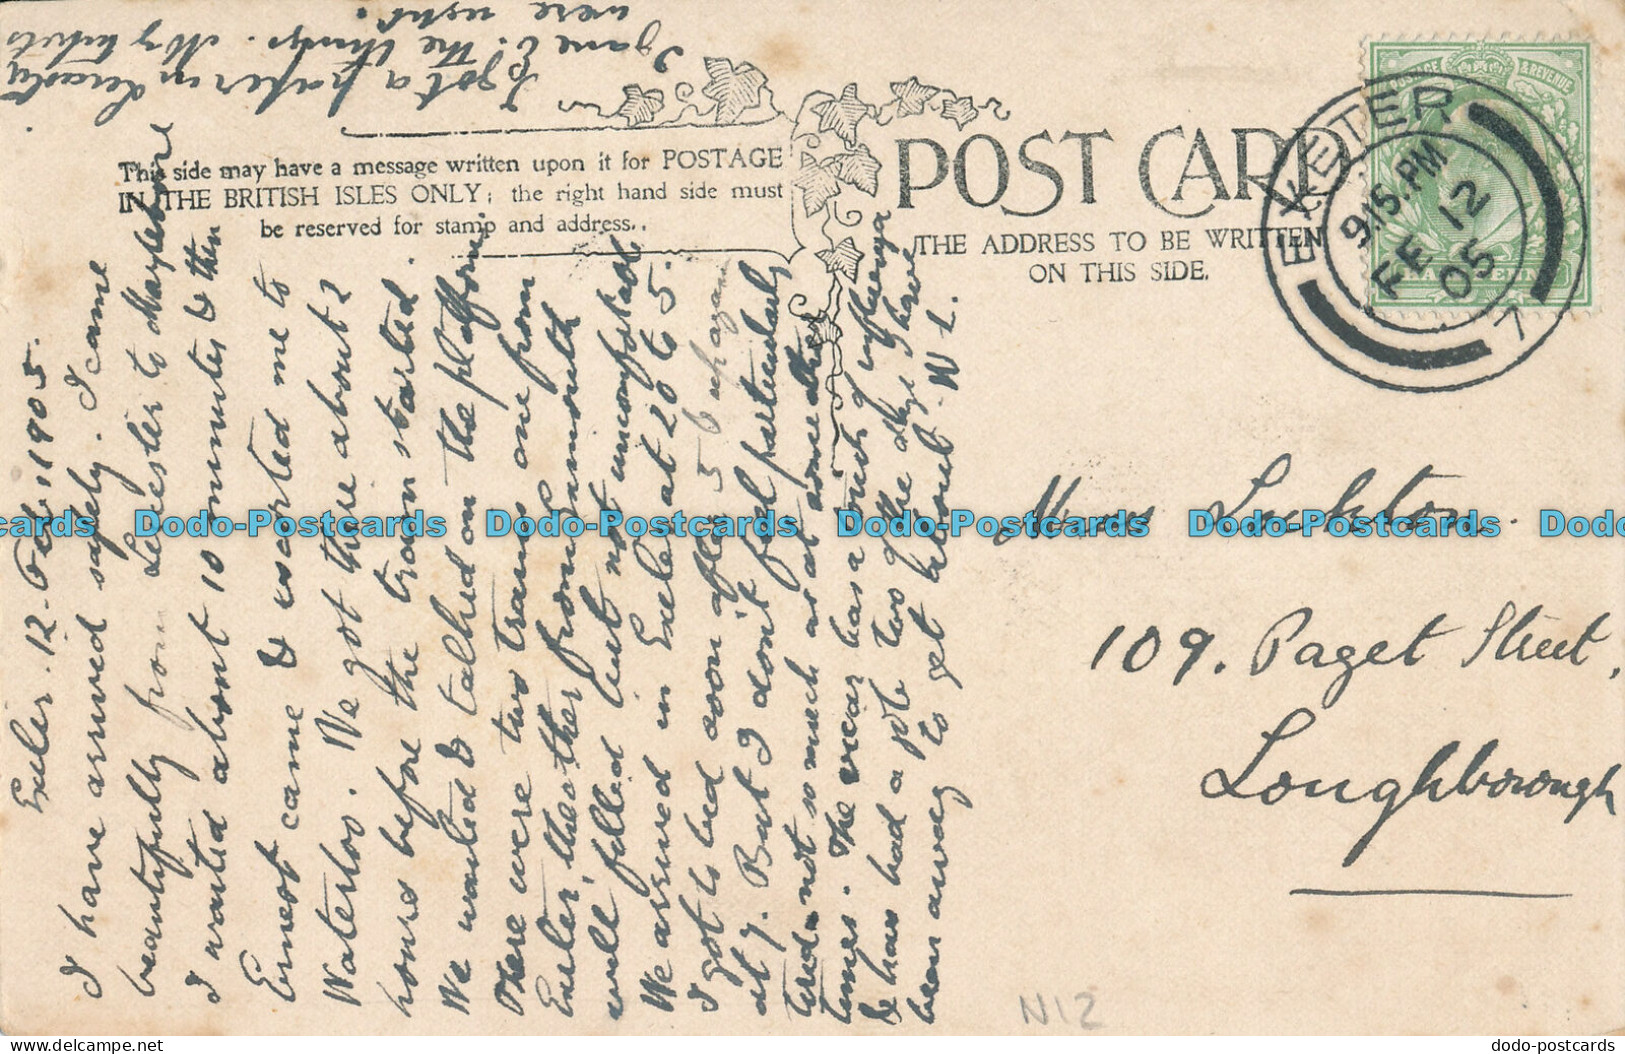 This side may have a message written upon it for POSTAGE
IN THE BRITISH ISLES ONLY; the right hand side must
be reserved for stamp and address..
POST CARD
THE ADDRESS TO BE WRITTEN
ON THIS SIDE.
EXETER
9.15.PM
FE 12
05
7
POSTAGE & REVENUE
Exeter. 12. Feb. 1905.
I have arrived safely. I came
beautifully from Leicester to Marylebone
I waited about 10 minutes & then
Ernest came & escorted me to
Waterloo. We got there about 2
hours before the train started.
We waited & talked on the platform
There were two trains one from
Exeter, the other from Plymouth
well filled but not uncomfortable
We arrived in Exeter at 20 to 5.
I got to bed soon after 5 & up again
at 9. But I don't feel particularly
tired not so much as at some other
times. The vicar has a touch of influenza
& has had a pole two of the days I have
been away to get about. W L.
I got a paper in Leicester
I gave E. the things. My tickets
were right.
Miss Luckton.
109. Paget Street,
Loughborough
N12
cards Dodo-Postcards Dodo-Postcards Dodo-Postcards Dodo-Postcards Dodo
Copyright Dodo-Postcards.com
dodo-postcards